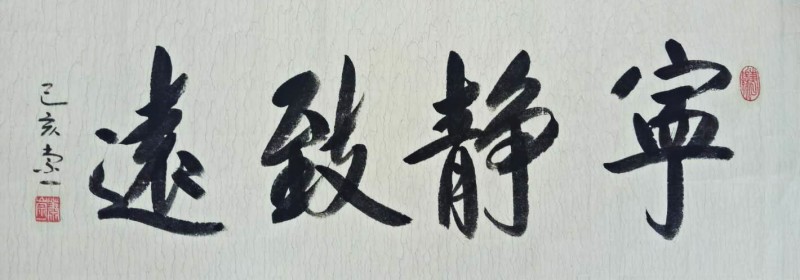 寧静致遠
己亥